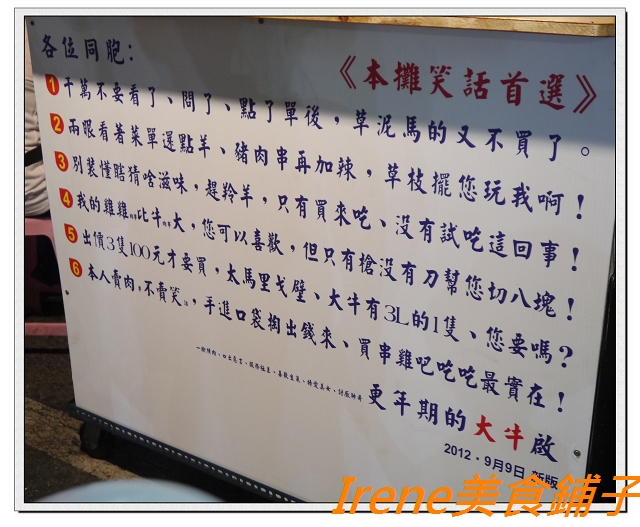 各位同胞：
《本攤笑話首選》
1 千萬不要看了、問了、點了單後，草泥馬的又不買了。
2 兩眼看著菜單選點羊、豬肉串再加辣，草枝擺您玩我啊！
3 別裝懂瞎猜啥滋味，趕羚羊，只有買來吃、沒有試吃這回事！
4 我的雞雞肉串比牛肉串大，您可以喜歡，但只有槍沒有刀幫您切八塊！
5 出價3隻100元才要買，太馬里戈壁、大牛有3L的1隻、您要嗎？
6 本人賣肉，不賣笑，手進口袋掏出錢來、買串雞吧吃吃最實在！
更年期的大牛啟
2012・9月9日 新版
Irene美食鋪子